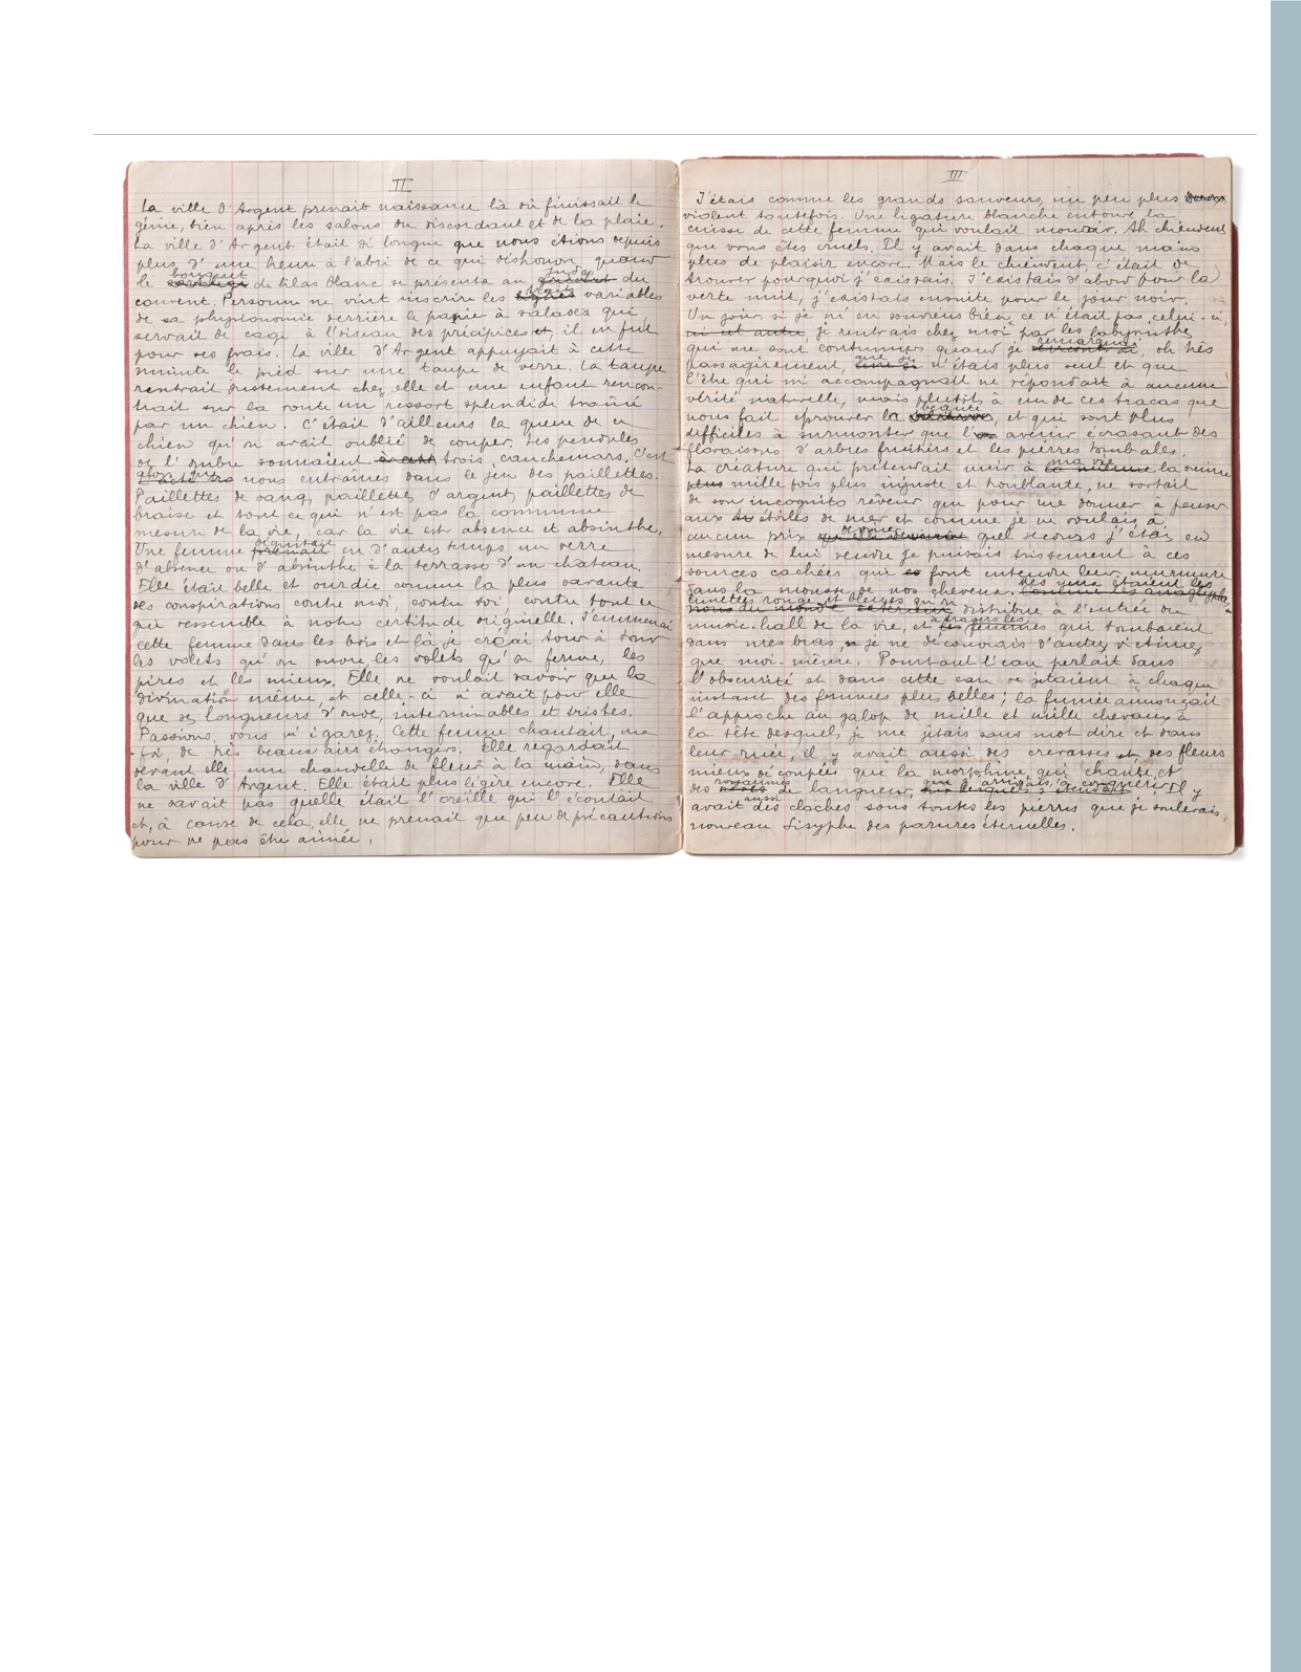 II
La ville d'Argent prenait naissance là où finissait le
génie, bien après les salons du discordant et de la plaie.
La ville d'Argent était si longue que nous étions depuis
plus d'une heure à l'abri de ce qui déshonore quand
bouquet index
le de lilas blanc se présenta au du
couvent. Personne ne vint inscrire les traits variables
de sa physionomie derrière le panier à salades qui
servait de cage à l'oiseau des précipices et, il en fut
pour ses frais. La ville d'Argent appuyait à cette
minute le pied sur une taupe de verre. La taupe
rentrait justement chez elle et une enfant rencon-
trait sur la route un ressort splendide traîné
par un chien. C'était d'ailleurs la queue de ce
chien qu'on avait oublié de couper. Les pendules
de l'ombre sonnaient trois cauchemars. C'est
alors que nous entraînes dans le jeu des paillettes.
Paillettes de sang, paillettes d'argent, paillettes de
braise et tout ce qui n'est pas la commune
mesure de la vie, car la vie est absence et absinthe.
dégustait
Une femme prenait en d'autres temps un verre
d'absence ou d'absinthe à la terrasse d'un château.
Elle était belle et ourdie comme la plus savante
des conspirations contre moi, contre toi, contre tout ce
qui ressemble à notre certitude originelle. J'emmenai
cette femme dans les bois et là je créai tour à tour
les volets qu'on ouvre, les volets qu'on ferme, les
pires et les mieux. Elle ne voulait savoir que la
divination même, et celle-ci n'avait pour elle
que des longueurs d'onde, interminables et tristes.
Passions, vous m'égarez. Cette femme chantait, ma
foi, de très beaux airs étrangers. Elle regardait
devant elle, une chandelle de fleurs à la main, dans
la ville d'Argent. Elle était plus légère encore. Elle
ne savait pas quelle était l'oreille qui l'écoutait
et, à cause de cela, elle ne prenait que peu de précautions
pour ne pas être aimée.
III
J'étais comme les grands sauveurs, un peu plus
violent toutefois. Une ligature blanche entoure la
cuisse de cette femme qui voulait mourir. Ah chiendent
que vous êtes cruels. Il y avait dans chaque main
plus de plaisir encore. Mais le chiendent, c'était de
trouver pourquoi j'existais. J'existais d'abord pour la
verte nuit, j'existais ensuite pour le jour noir.
Un jour, si je m'en souviens bien, ce n'était pas celui-ci,
ni cet autre, je rentrais chez moi par les labyrinthes
remarquai
qui me sont coutumiers quand je, oh très
que je
passagèrement, n'étais plus seul et que
l'être qui m'accompagnait ne répondait à aucune
vérité naturelle, mais plutôt à un de ces tracas que
beauté
nous fait éprouver la, et qui sont plus
difficiles à surmonter que l'avenir écrasant des
floraisons d'arbres fruitiers et les pierres tombales.
ma vie
La créature qui prétendait unir à la sienne
plus mille fois plus injuste et troublante, ne sortait
de son incognito rêveur que pour me donner à penser
aux étoiles de mer et comme je ne voulais à
deviner
aucun prix quel secours j'étais en
mesure de lui rendre je puisais tristement à ces
sources cachées qui font entendre leur murmure
dans la mousse de nos cheveux. Ses yeux étaient les
lunettes rouges et bleues qu'on
distribue à l'entrée du
à travers les
music-hall de la vie, et les femmes qui tombaient
dans mes bras, je ne découvrais d'autres victimes
que moi-même. Pourtant l'eau perlait dans
l'obscurité et dans cette eau se jetaient à chaque
instant des femmes plus belles ; la fumée annonçait
l'approche au galop de mille et mille chevaux à
la tête desquels je me jetais sans mot dire et dans
leur ruée, il y avait aussi des crevasses et des fleurs
mieux découpées que la morphine, qui chante, et
royaumes que j'arrivais à conquérir
des de langueur, Il y
aussi
avait des cloches sous toutes les pierres que je soulevais,
nouveau Sisyphe des parures éternelles.